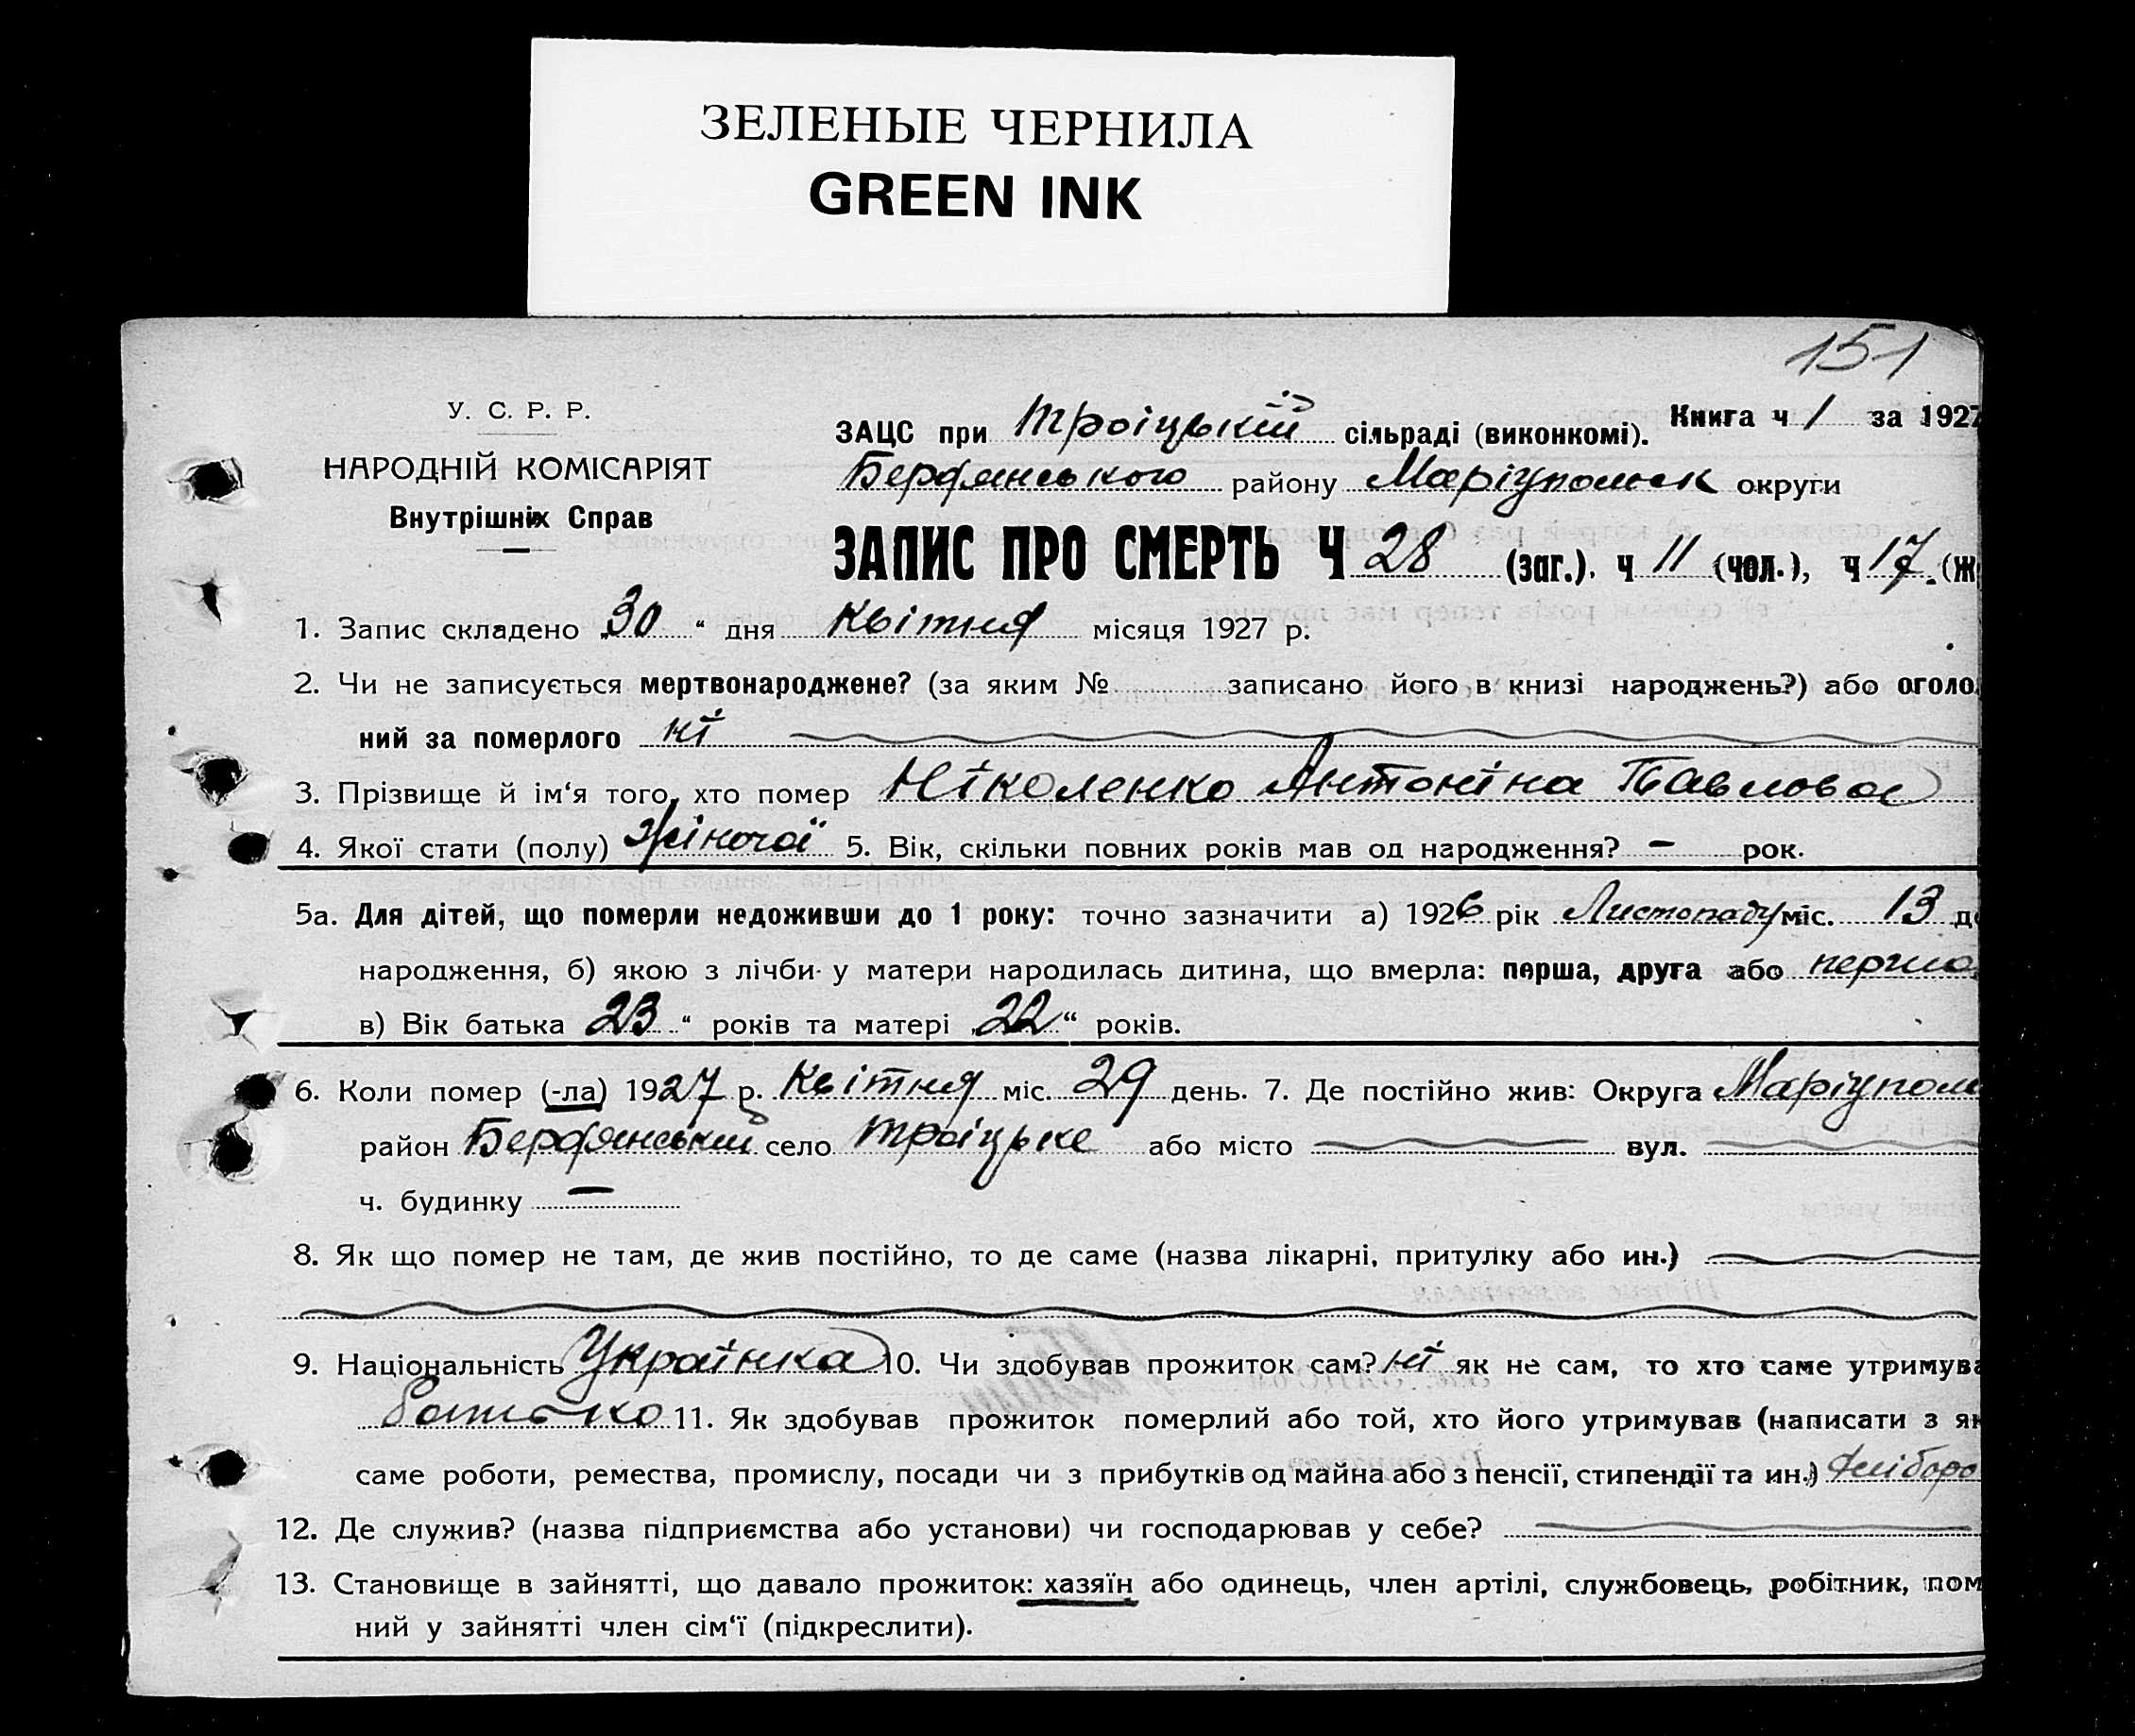 ЗЕЛЕНЫЕ ЧЕРНИЛА
GREEN INK
151
У. С. Р. Р.
НАРОДНІЙ КОМІСАРІЯТ
Внутрішніх Справ
Книга ч 1 за 1927
ЗАЦС при Троіцькій сільраді (виконкомі).
Бердянського району Маріупольск округи
ЗАПИС ПРО СМЕРТЬ Ч 28 (заг.). ч 11 (чол.), ч 17. (ж
1. Запис складено „30“ дня Квітня місяця 1927 р.
2. Чи не записується мертвонароджене? (за яким № записано його в книзі народжень?) або оголо
ний за померлого ні
3. Прізвище й ім‘я того, хто помер Ніколенко Антоніна Павлова
4. Якої стати (полу) жіночої 5. Вік, скільки повних років мав од народження? – рок.
5а. Для дітей, що померли недоживши до 1 року: точно зазначити а) 1926 рік Листопаду міс. 13 де
народження, б) якою з лічби у матери народилась дитина, що вмерла: перша, друга або перша
в) Вік батька 23“ років та матері „22“ років.
6. Коли помер (-ла) 1927 р. Квітня міс. 29 день. 7. Де постійно жив: Округа Маріупол
район Бердянський село Троіцьке або місто вул.
ч. будинку —
8. Як що помер не там, де жив постійно, то де саме (назва лікарні, притулку або ин.)
9. Національність Українка 10. Чи здобував прожиток сам? ні як не сам, то хто саме утримува
батько 11. Як здобував прожиток померлий або той, хто його утримував (написати з як
саме роботи, ремества, промислу, посади чи з прибутків од майна або з пенсії, стипендії та ин.) Хліборо
12. Де служив? (назва підприємства або установи) чи господарював у себе?
13. Становище в зайнятті, що давало прожиток: хазяїн або одинець, член артілі, службовець, робітник, пом
ний у зайнятті член сім‘ї (підкреслити).